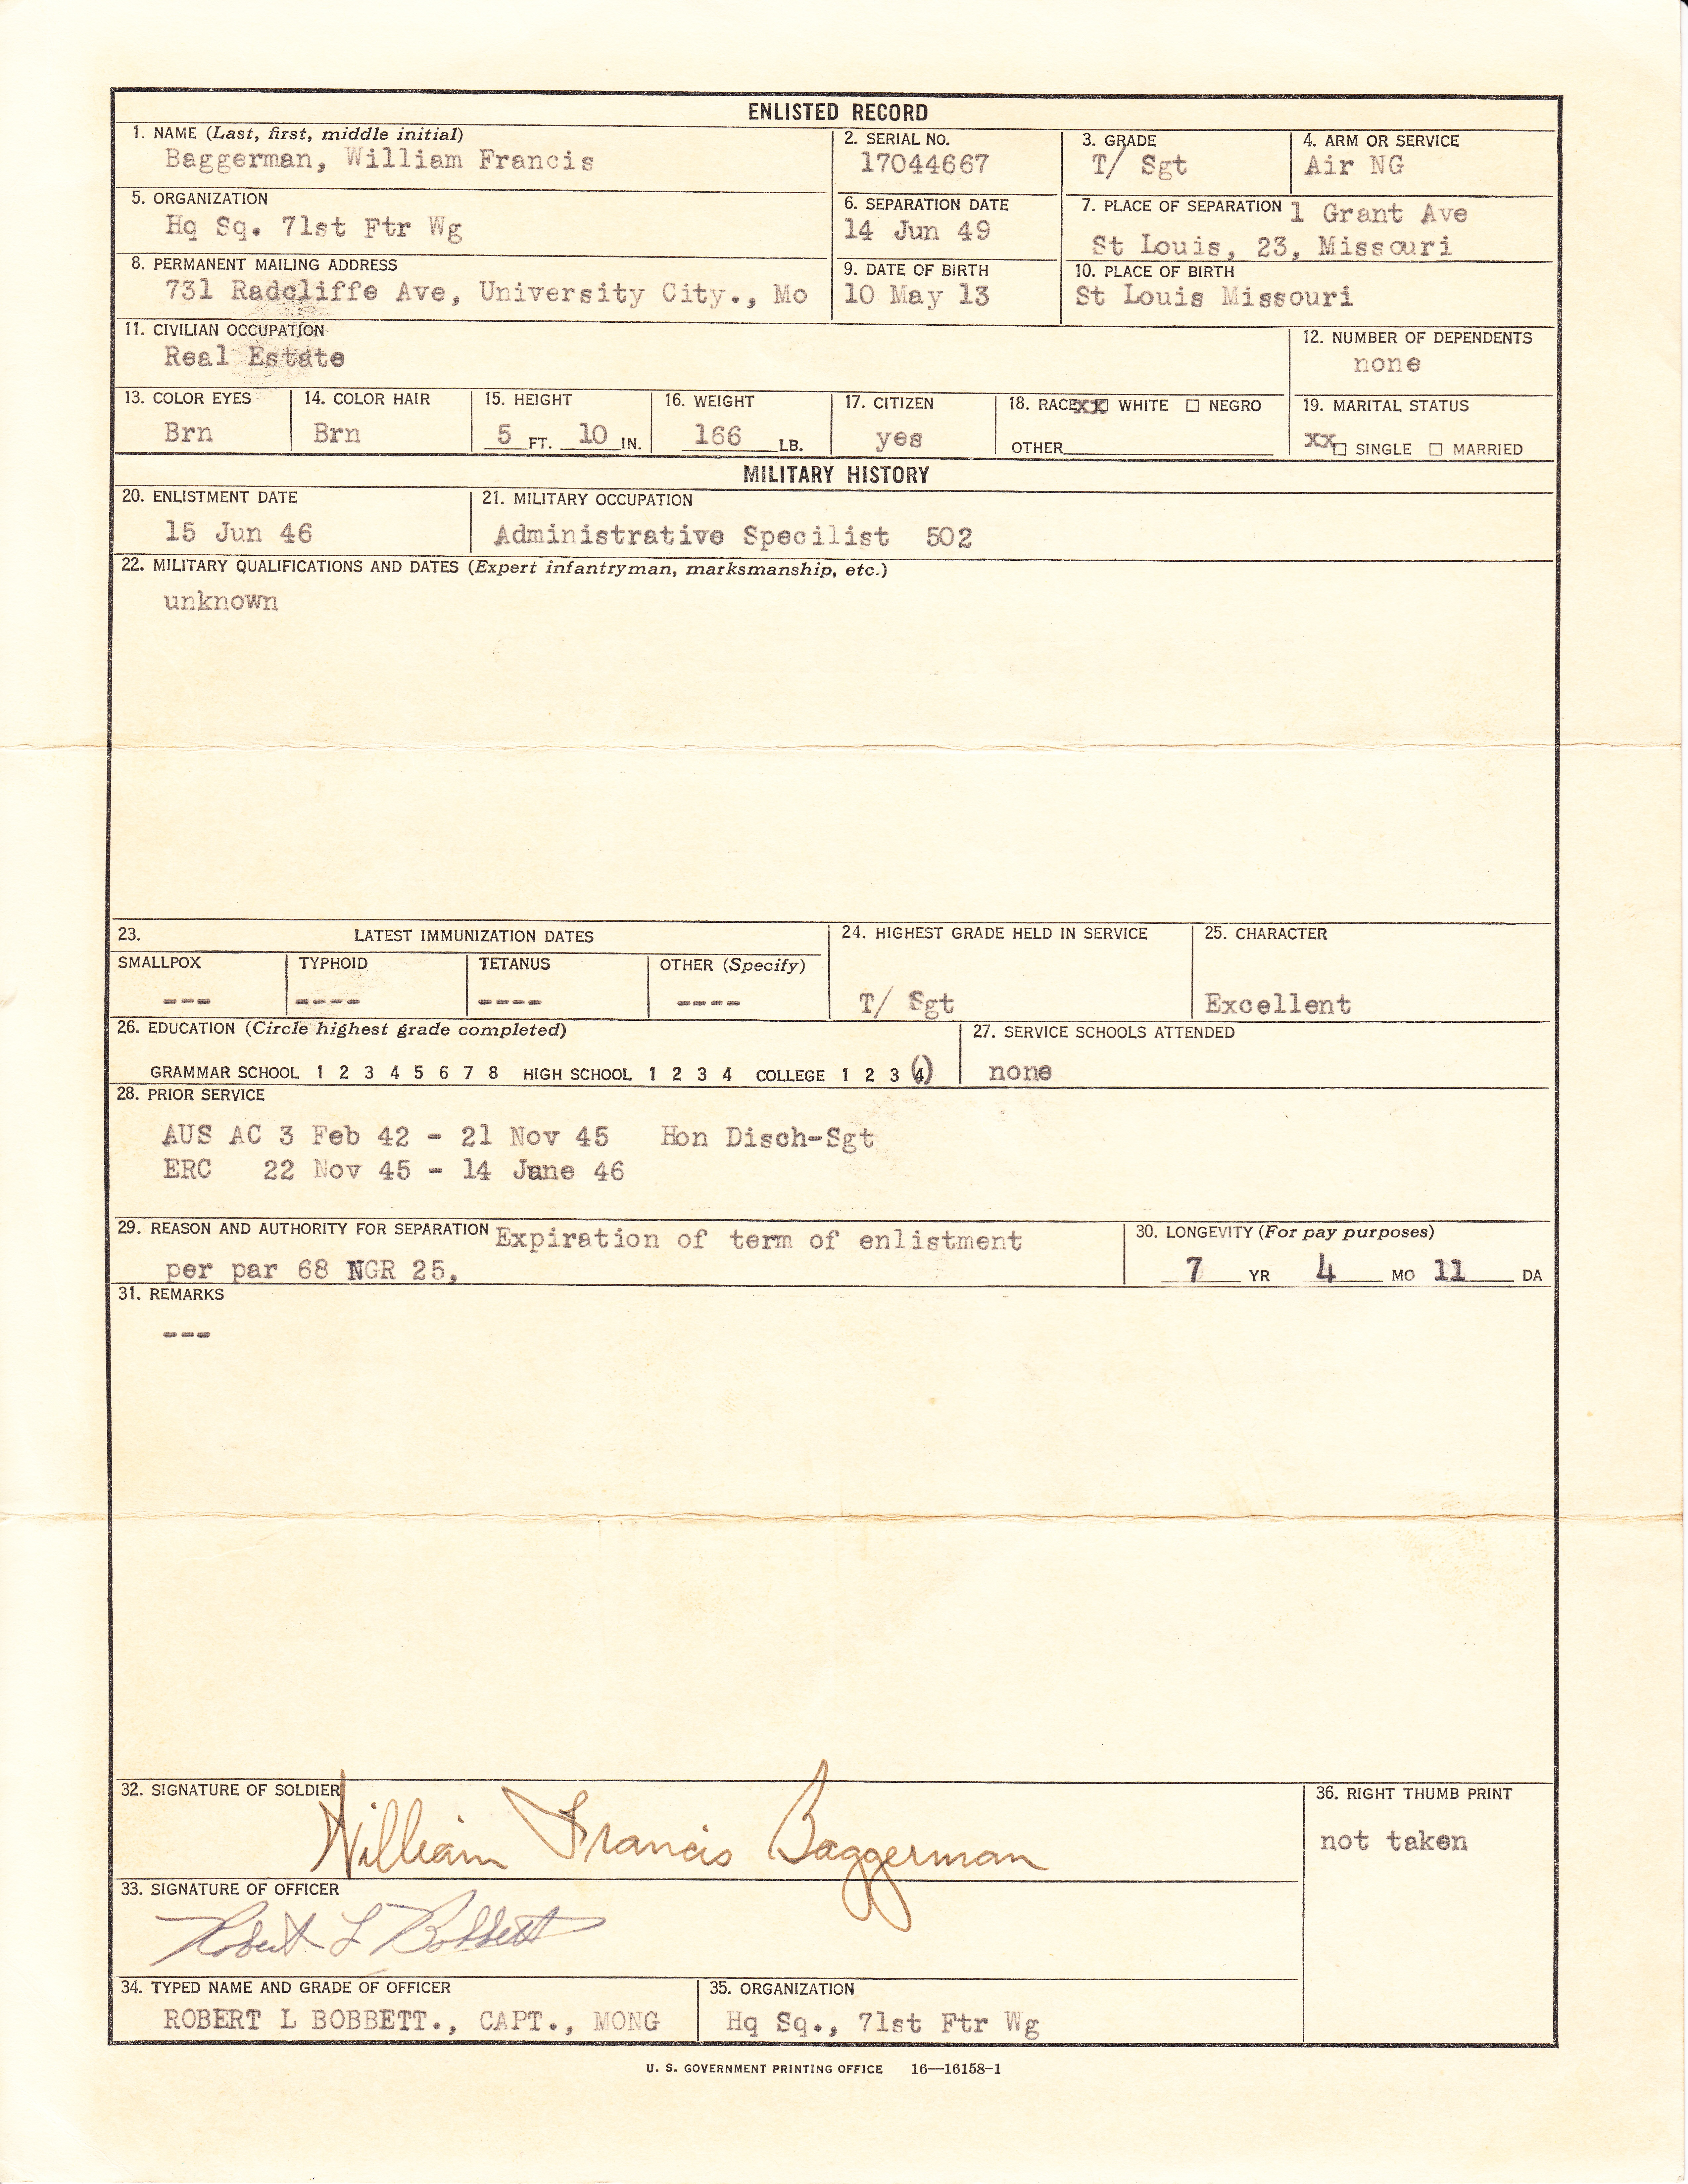 ENLISTED RECORD
1. NAME (Last, first, middle initial)
Baggerman, William Francis
2. SERIAL NO.
17044667
3. GRADE
T/ Sgt
4. ARM OR SERVICE
Air NG
5. ORGANIZATION
Hq Sq. 71st Ftr Wg
6. SEPARATION DATE
14 Jun 49
7. PLACE OF SEPARATION 1 Grant Ave
St Louis, 23, Missouri
8. PERMANENT MAILING ADDRESS
731 Radcliffe Ave, University City., Mo
9. DATE OF BIRTH
10 May 13
10. PLACE OF BIRTH
St Louis Missouri
11. CIVILIAN OCCUPATION
Real Estate
12. NUMBER OF DEPENDENTS
none
13. COLOR EYES
Brn
14. COLOR HAIR
Brn
15. HEIGHT
5 FT. 10 IN.
16. WEIGHT
166 LB.
17. CITIZEN
yes
18. RACE xx ☐ WHITE ☐ NEGRO
OTHER
19. MARITAL STATUS
xx ☐ SINGLE ☐ MARRIED
MILITARY HISTORY
20. ENLISTMENT DATE
15 Jun 46
21. MILITARY OCCUPATION
Administrative Specilist 502
22. MILITARY QUALIFICATIONS AND DATES (Expert infantryman, marksmanship, etc.)
unknown
23. LATEST IMMUNIZATION DATES
SMALLPOX
---
TYPHOID
----
TETANUS
----
OTHER (Specify)
----
24. HIGHEST GRADE HELD IN SERVICE
T/ Sgt
25. CHARACTER
Excellent
26. EDUCATION (Circle highest grade completed)
GRAMMAR SCHOOL 1 2 3 4 5 6 7 8 HIGH SCHOOL 1 2 3 4 COLLEGE 1 2 3 (4)
27. SERVICE SCHOOLS ATTENDED
none
28. PRIOR SERVICE
AUS AC 3 Feb 42 - 21 Nov 45 Hon Disch-Sgt
ERC 22 Nov 45 - 14 June 46
29. REASON AND AUTHORITY FOR SEPARATION Expiration of term of enlistment
per par 68 NGR 25,
30. LONGEVITY (For pay purposes)
7 YR 4 MO 11 DA
31. REMARKS
---
32. SIGNATURE OF SOLDIER
William Francis Baggerman
33. SIGNATURE OF OFFICER
Robert L Bobbett
34. TYPED NAME AND GRADE OF OFFICER
ROBERT L BOBBETT., CAPT., MONG
35. ORGANIZATION
Hq Sq., 71st Ftr Wg
36. RIGHT THUMB PRINT
not taken
U. S. GOVERNMENT PRINTING OFFICE 16—16158-1